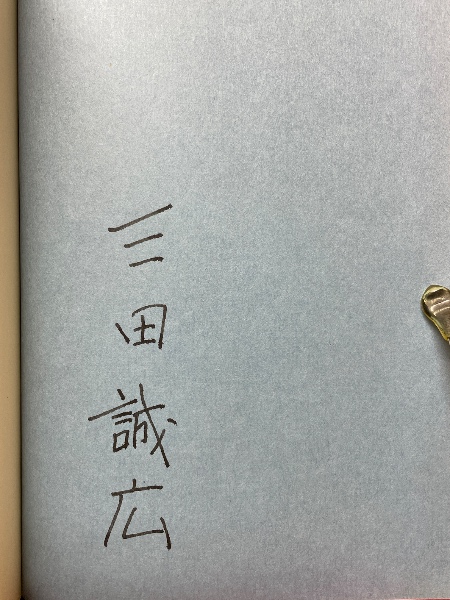 三田誠広